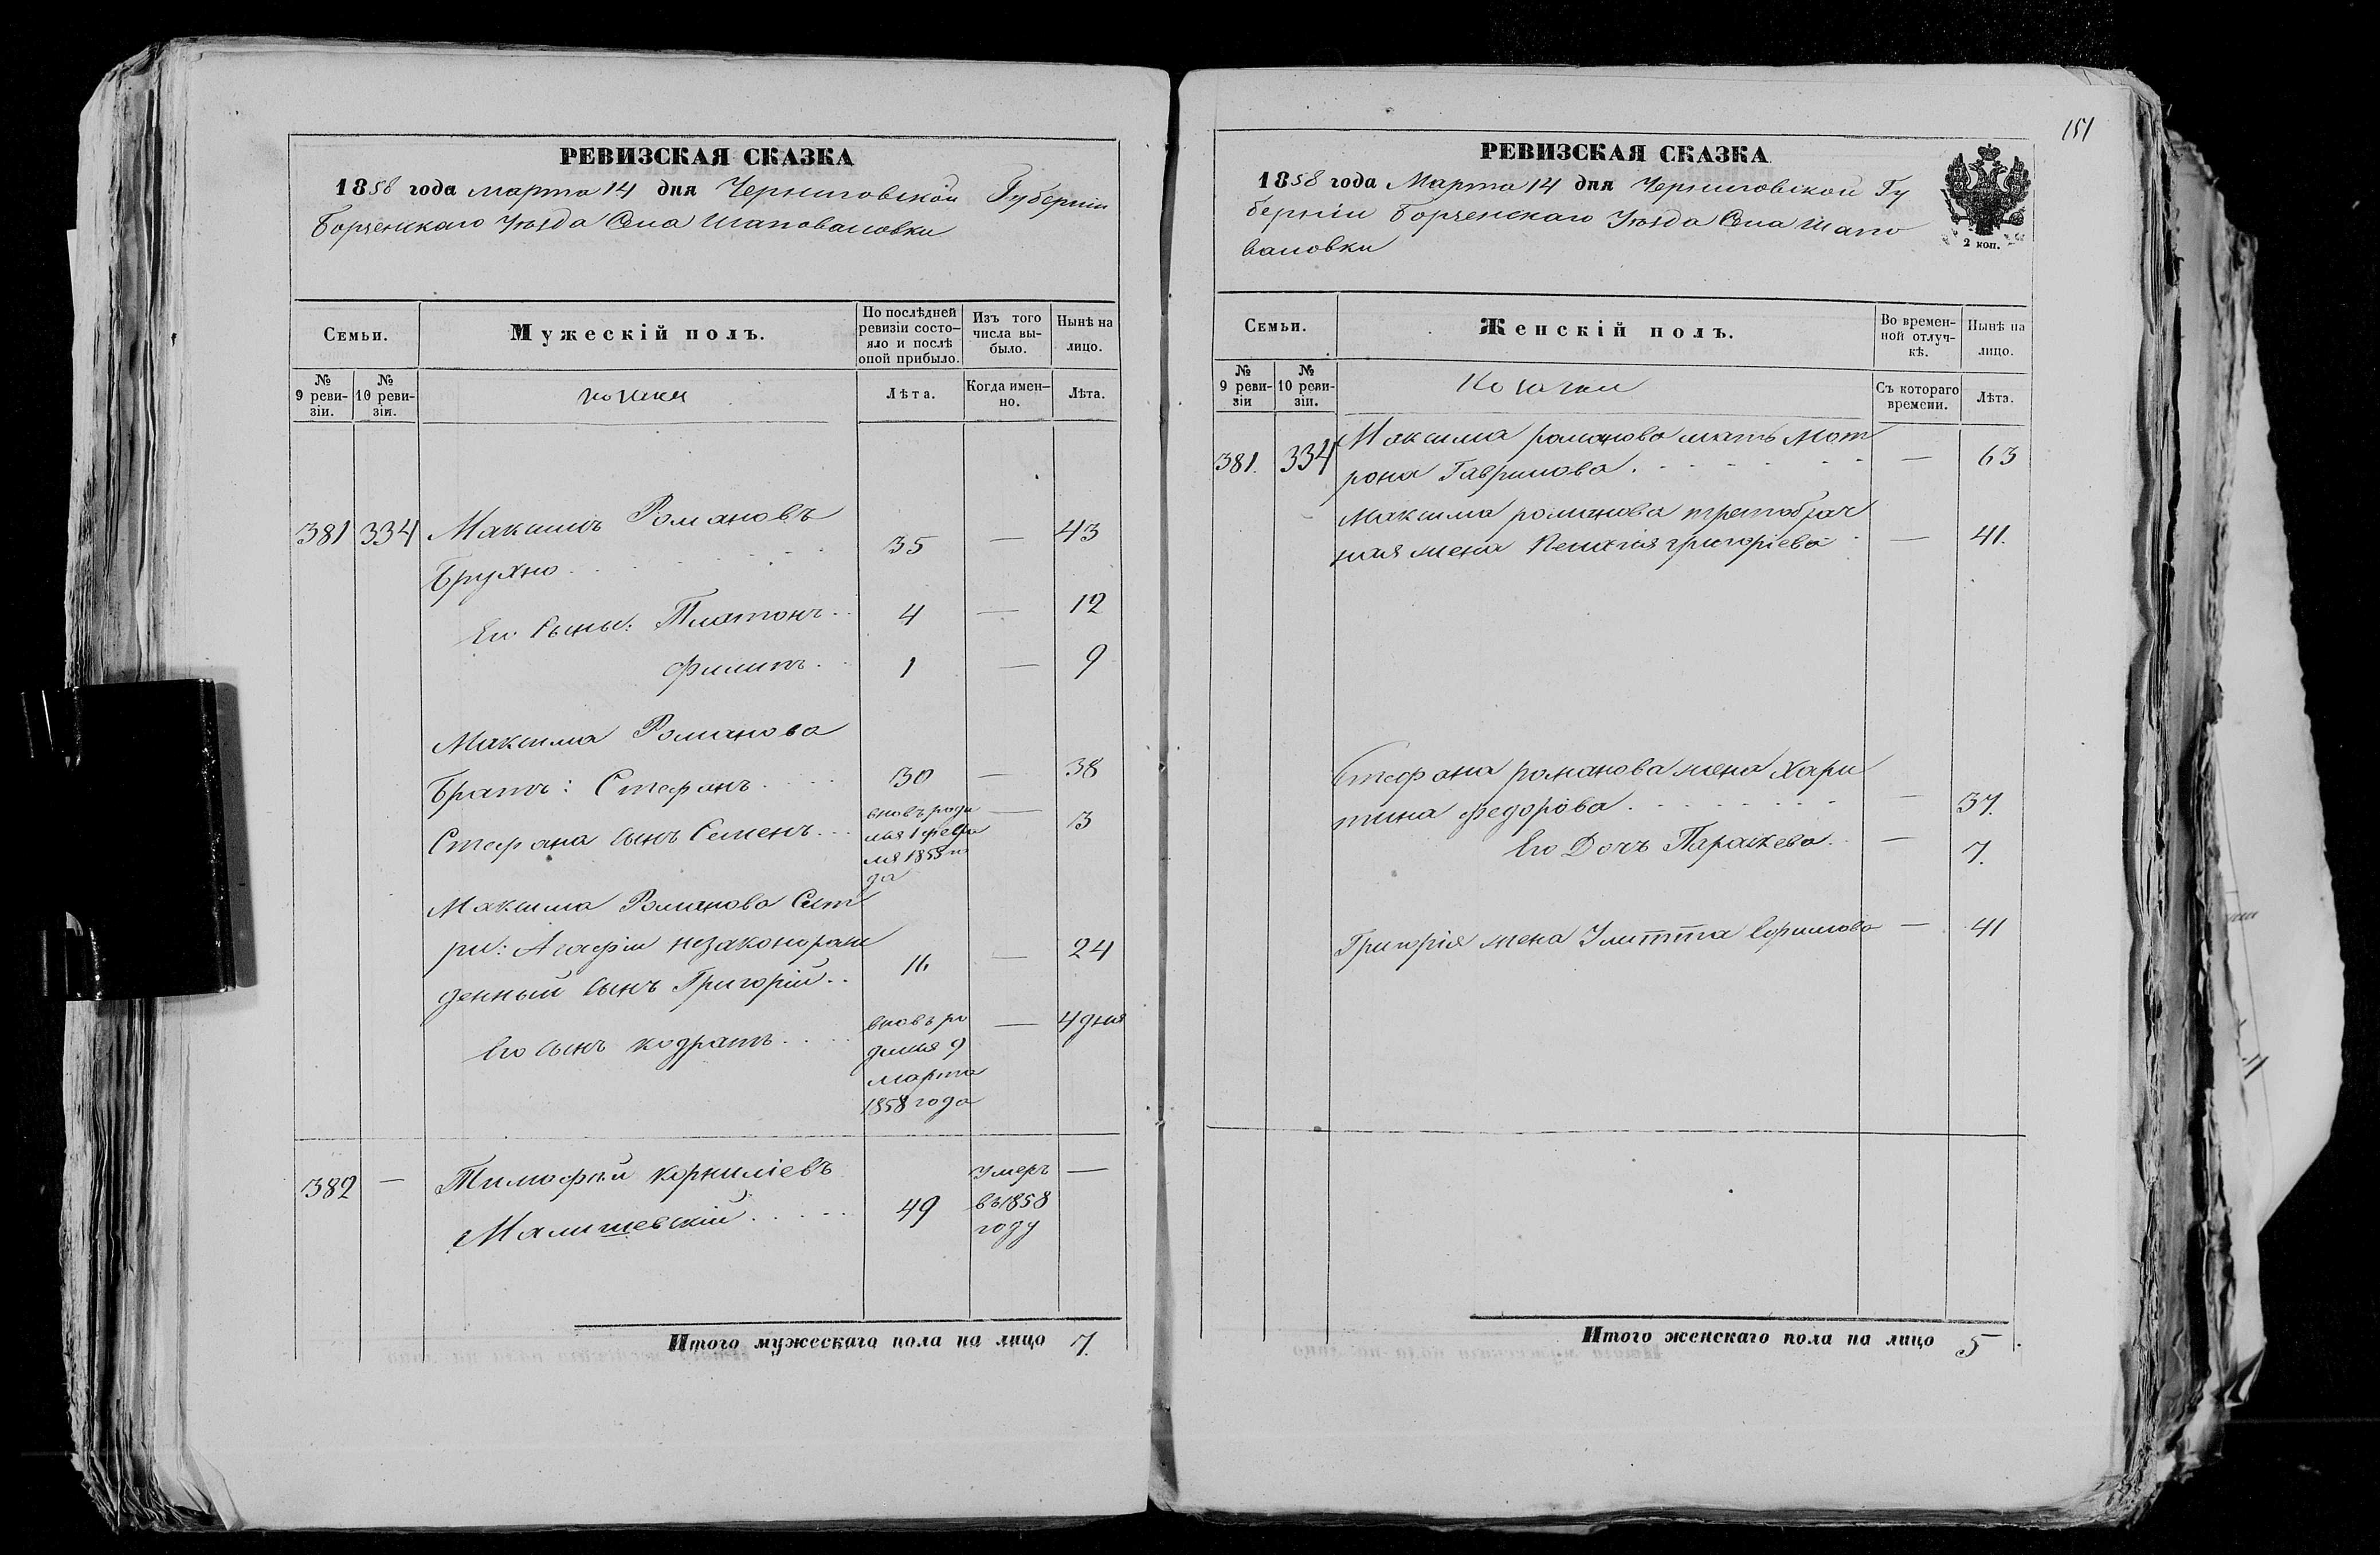 РЕВИЗСКАЯ СКАЗКА
1858 года марта 14 дня Черниговской Губерніи
Борзенскаго Уѣзда Села Шаповаловки
Семьи.
Мужескій полъ.
По послѣдней ревизіи состо-
яло и послѣ
оной прибыло.
Изъ того
числа вы-
было.
Нынѣ на
лицо.
№
9 реви-
зіи.
№
10 реви-
зіи.
козаки
Лѣта.
Когда имен-
но.
Лѣта.
381 334 Максимъ Романовъ
Брухно 35 — 43
Его сыны: Платонъ 4 — 12
Филипъ 1 — 9
Максима Романова
Братъ: Стефанъ 30 — 38
Стефана сынъ Семенъ
вновь роди
лся 1 февра
ля 1855 го
да
— 3
Максима Романова Сест
ры: Агафіи незаконорож
денный сынъ Григорій 16 — 24
Его сынъ Кодратъ
вновь ро
дился 9
марта
1858 года
— 4 дня
382 — Тимофѣй Корниліевъ
Малишевскій 49
умеръ
въ 1858
году
—
Итого мужескаго пола на лицо 7.
151
РЕВИЗСКАЯ СКАЗКА
1858 года Марта 14 дня Черниговской Гу
берніи Борзенскаго Уѣзда Села Шапо
валовки
2 коп.
Семьи.
Женскій полъ.
Во времен-
ной отлуч-
кѣ.
Нынѣ на
лицо.
№
9 реви-
зіи
№
10 реви-
зіи.
Козачки
Съ котораго
времени.
Лѣта.
381. 334 Максима романова мать Мот
рона Гаврилова — 63
Максима романова третобрач
ная жена Пелагія григоріева — 41.
Стефана романова жена Хари
тина федорова — 37.
Его Дочь Параскева — 7.
Григорія жена Улита — 41
Итого женскаго пола на лицо 5